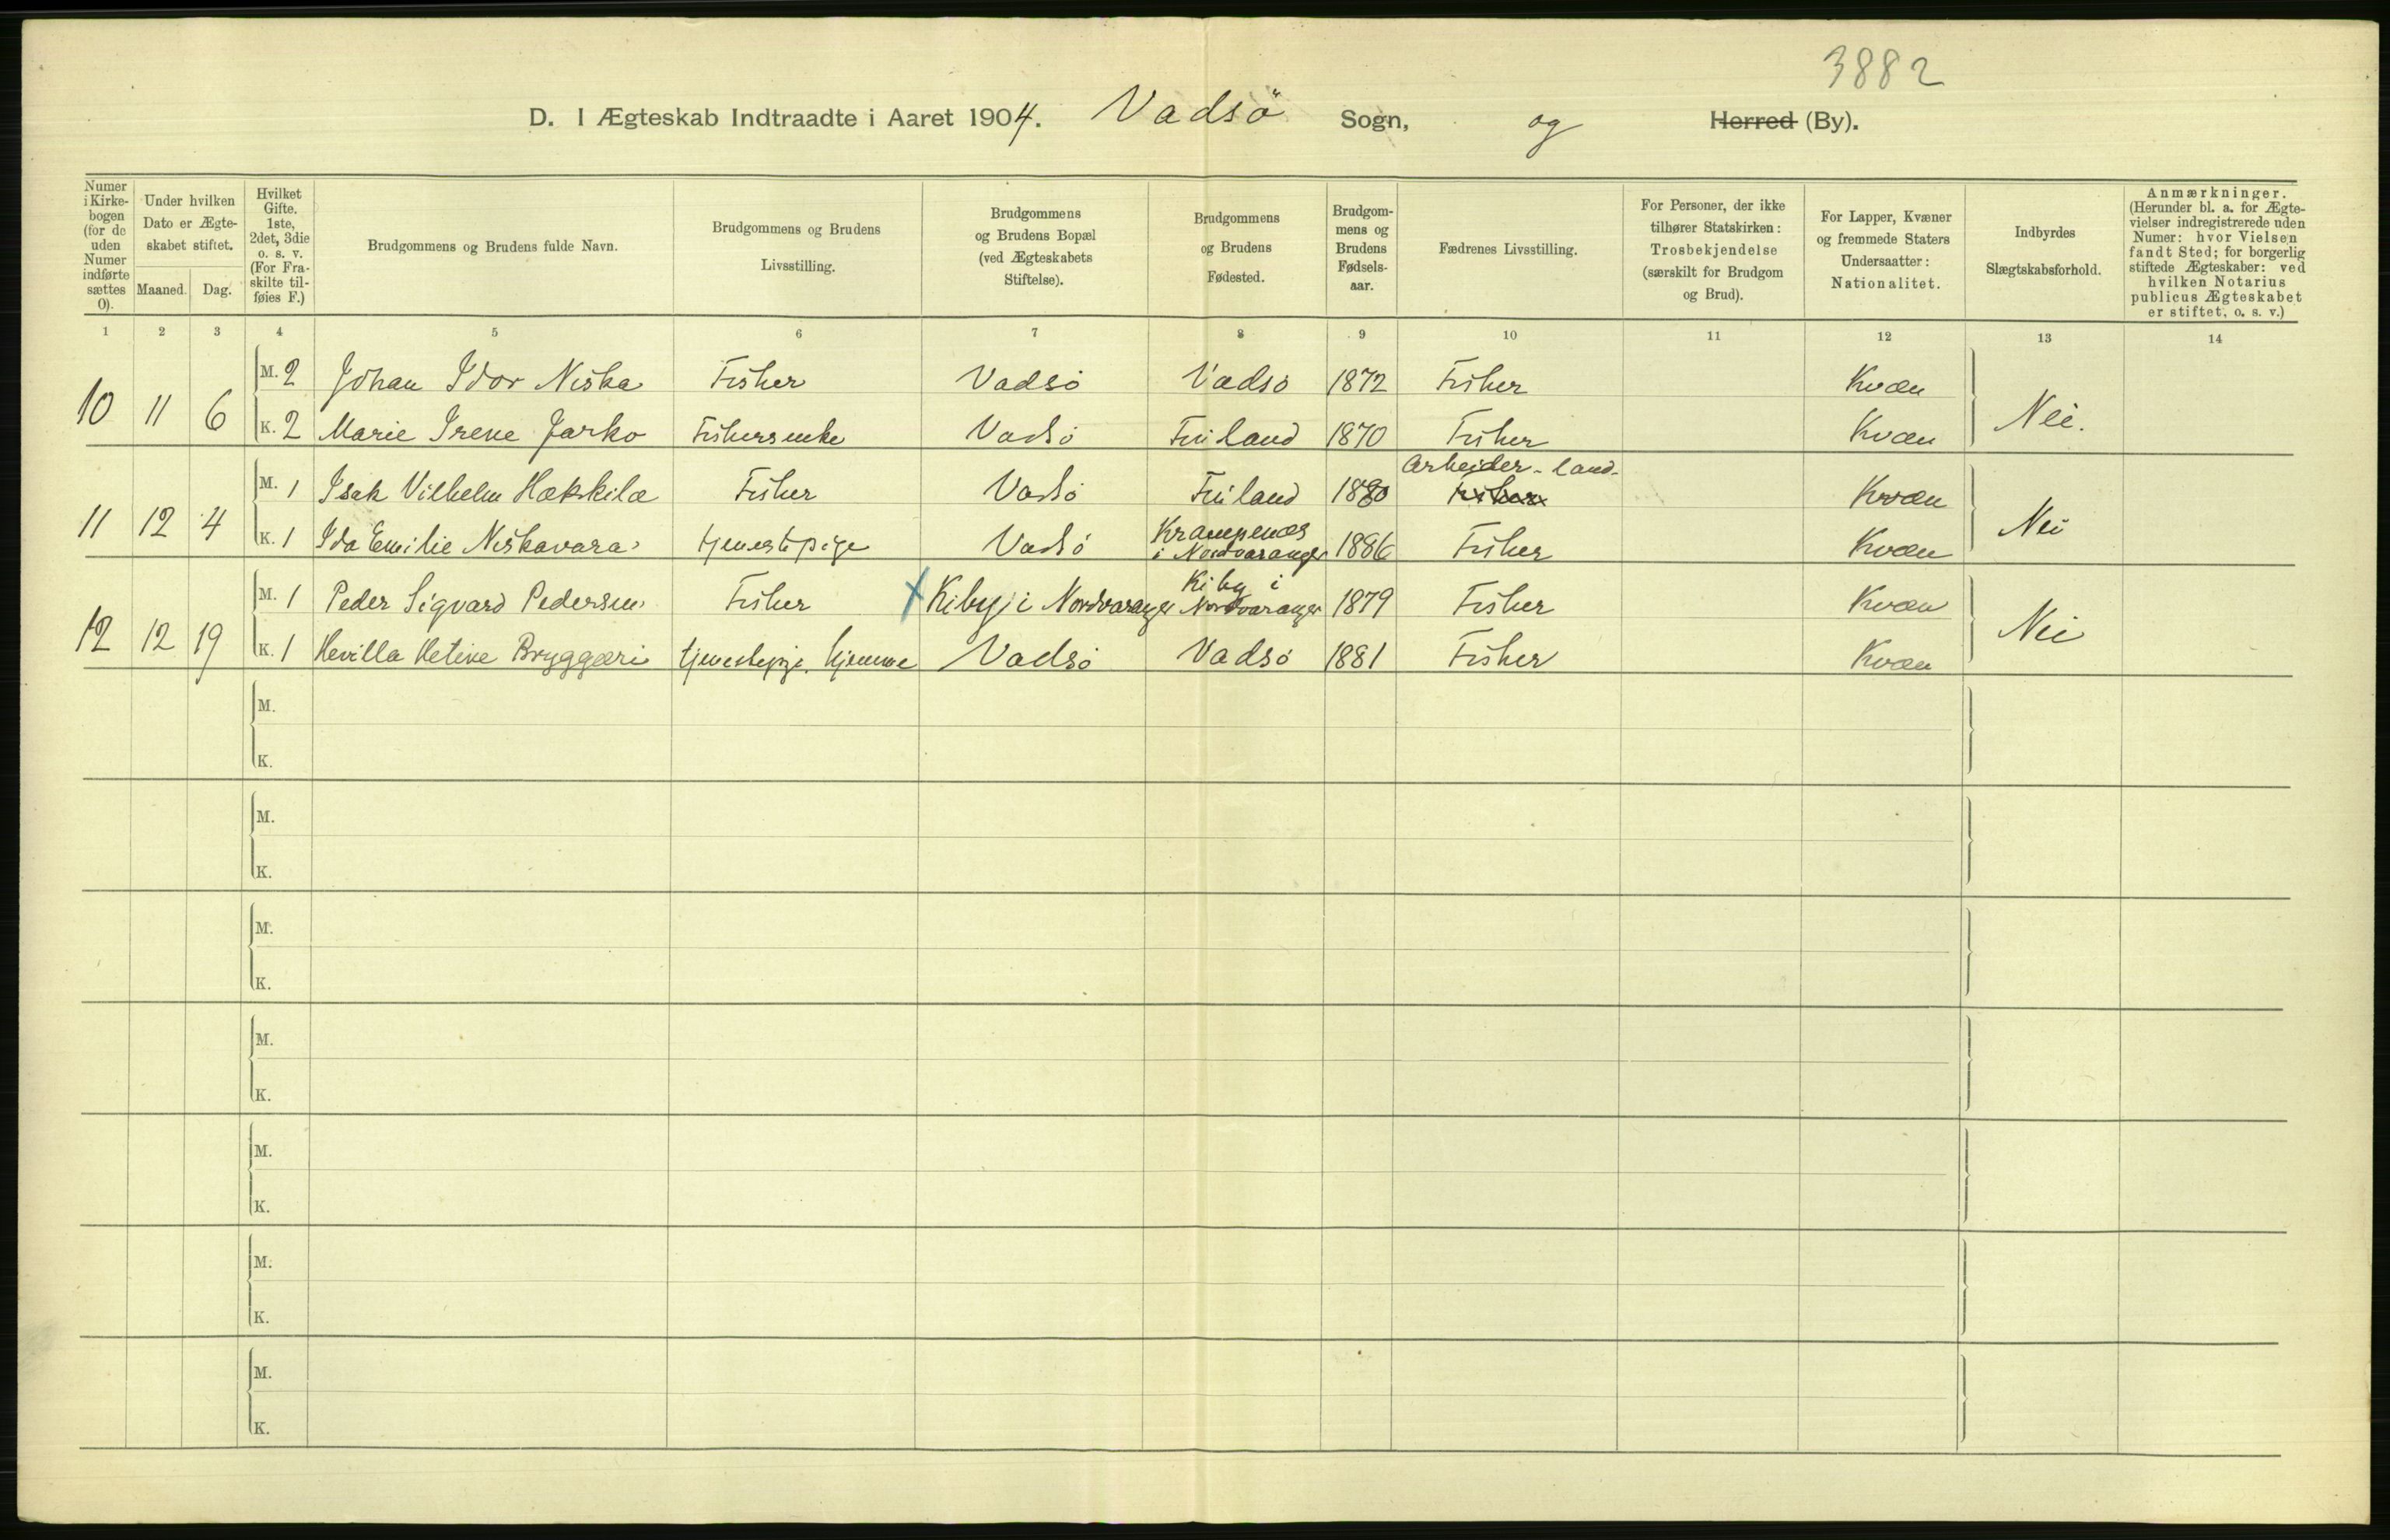 3882
D. I Ægteskab Indtraadte i Aaret 1904. Vadsö Sogn, og Herred (By).
Numer i Kirkebogen (for de uden Numer indførte sættes 0).
Under hvilken Dato er Ægteskabet stiftet.
Maaned. Dag.
Hvilket Gifte. 1ste, 2det, 3die o. s. v. (For Fraskilte tilføies F.)
Brudgommens og Brudens fulde Navn.
Brudgommens og Brudens Livsstilling.
Brudgommens og Brudens Bopæl (ved Ægteskabets Stiftelse).
Brudgommens og Brudens Fødested.
Brudgommens og Brudens Fødselsaar.
Fædrenes Livsstilling.
For Personer, der ikke tilhører Statskirken: Trosbekjendelse (særskilt for Brudgom og Brud).
For Lapper, Kvæner og fremmede Staters Undersaatter: Nationalitet.
Indbyrdes Slægtskabsforhold.
Anmærkninger. (Herunder bl. a. for Ægtevielser indregistrerede uden Numer: hvor Vielsen fandt Sted; for borgerlig stiftede Ægteskaber: ved hvilken Notarius publicus Ægteskabet er stiftet, o. s. v.)
1 2 3 4 5 6 7 8 9 10 11 12 13 14
M. 2 Johan Idor Niska Fisker Vadsö Vadsö 1872 Fisker Kvæn
10 11 6 Nei.
K. 2 Marie Irene Jarko Fiskersenke Vadsö Finland 1870 Fisker Kvæn
Arbeider - land-
M. 1 Isak Vilhelm Hækkilæ Fisker Vadsö Finland 1880 Fisker Kvæn
11 12 4 Nei
Krampenæs
K. 1 Ida Emilie Niskavara tjenestepige Vadsö i Nordvaranger 1886 Fisker Kvæn
Kiby i
M. 1 Peder Sigvard Pedersen Fisker x Kiby i Nordvaranger Nordvaranger 1879 Fisker Kvæn
12 12 19 Nei
K. 1 Hevilla Bryggari tjenestepige hjemme Vadsö Vadsö 1881 Fisker Kvæn
M.
K.
M.
K.
M.
K.
M.
K.
M.
K.
M.
K.
M.
K.